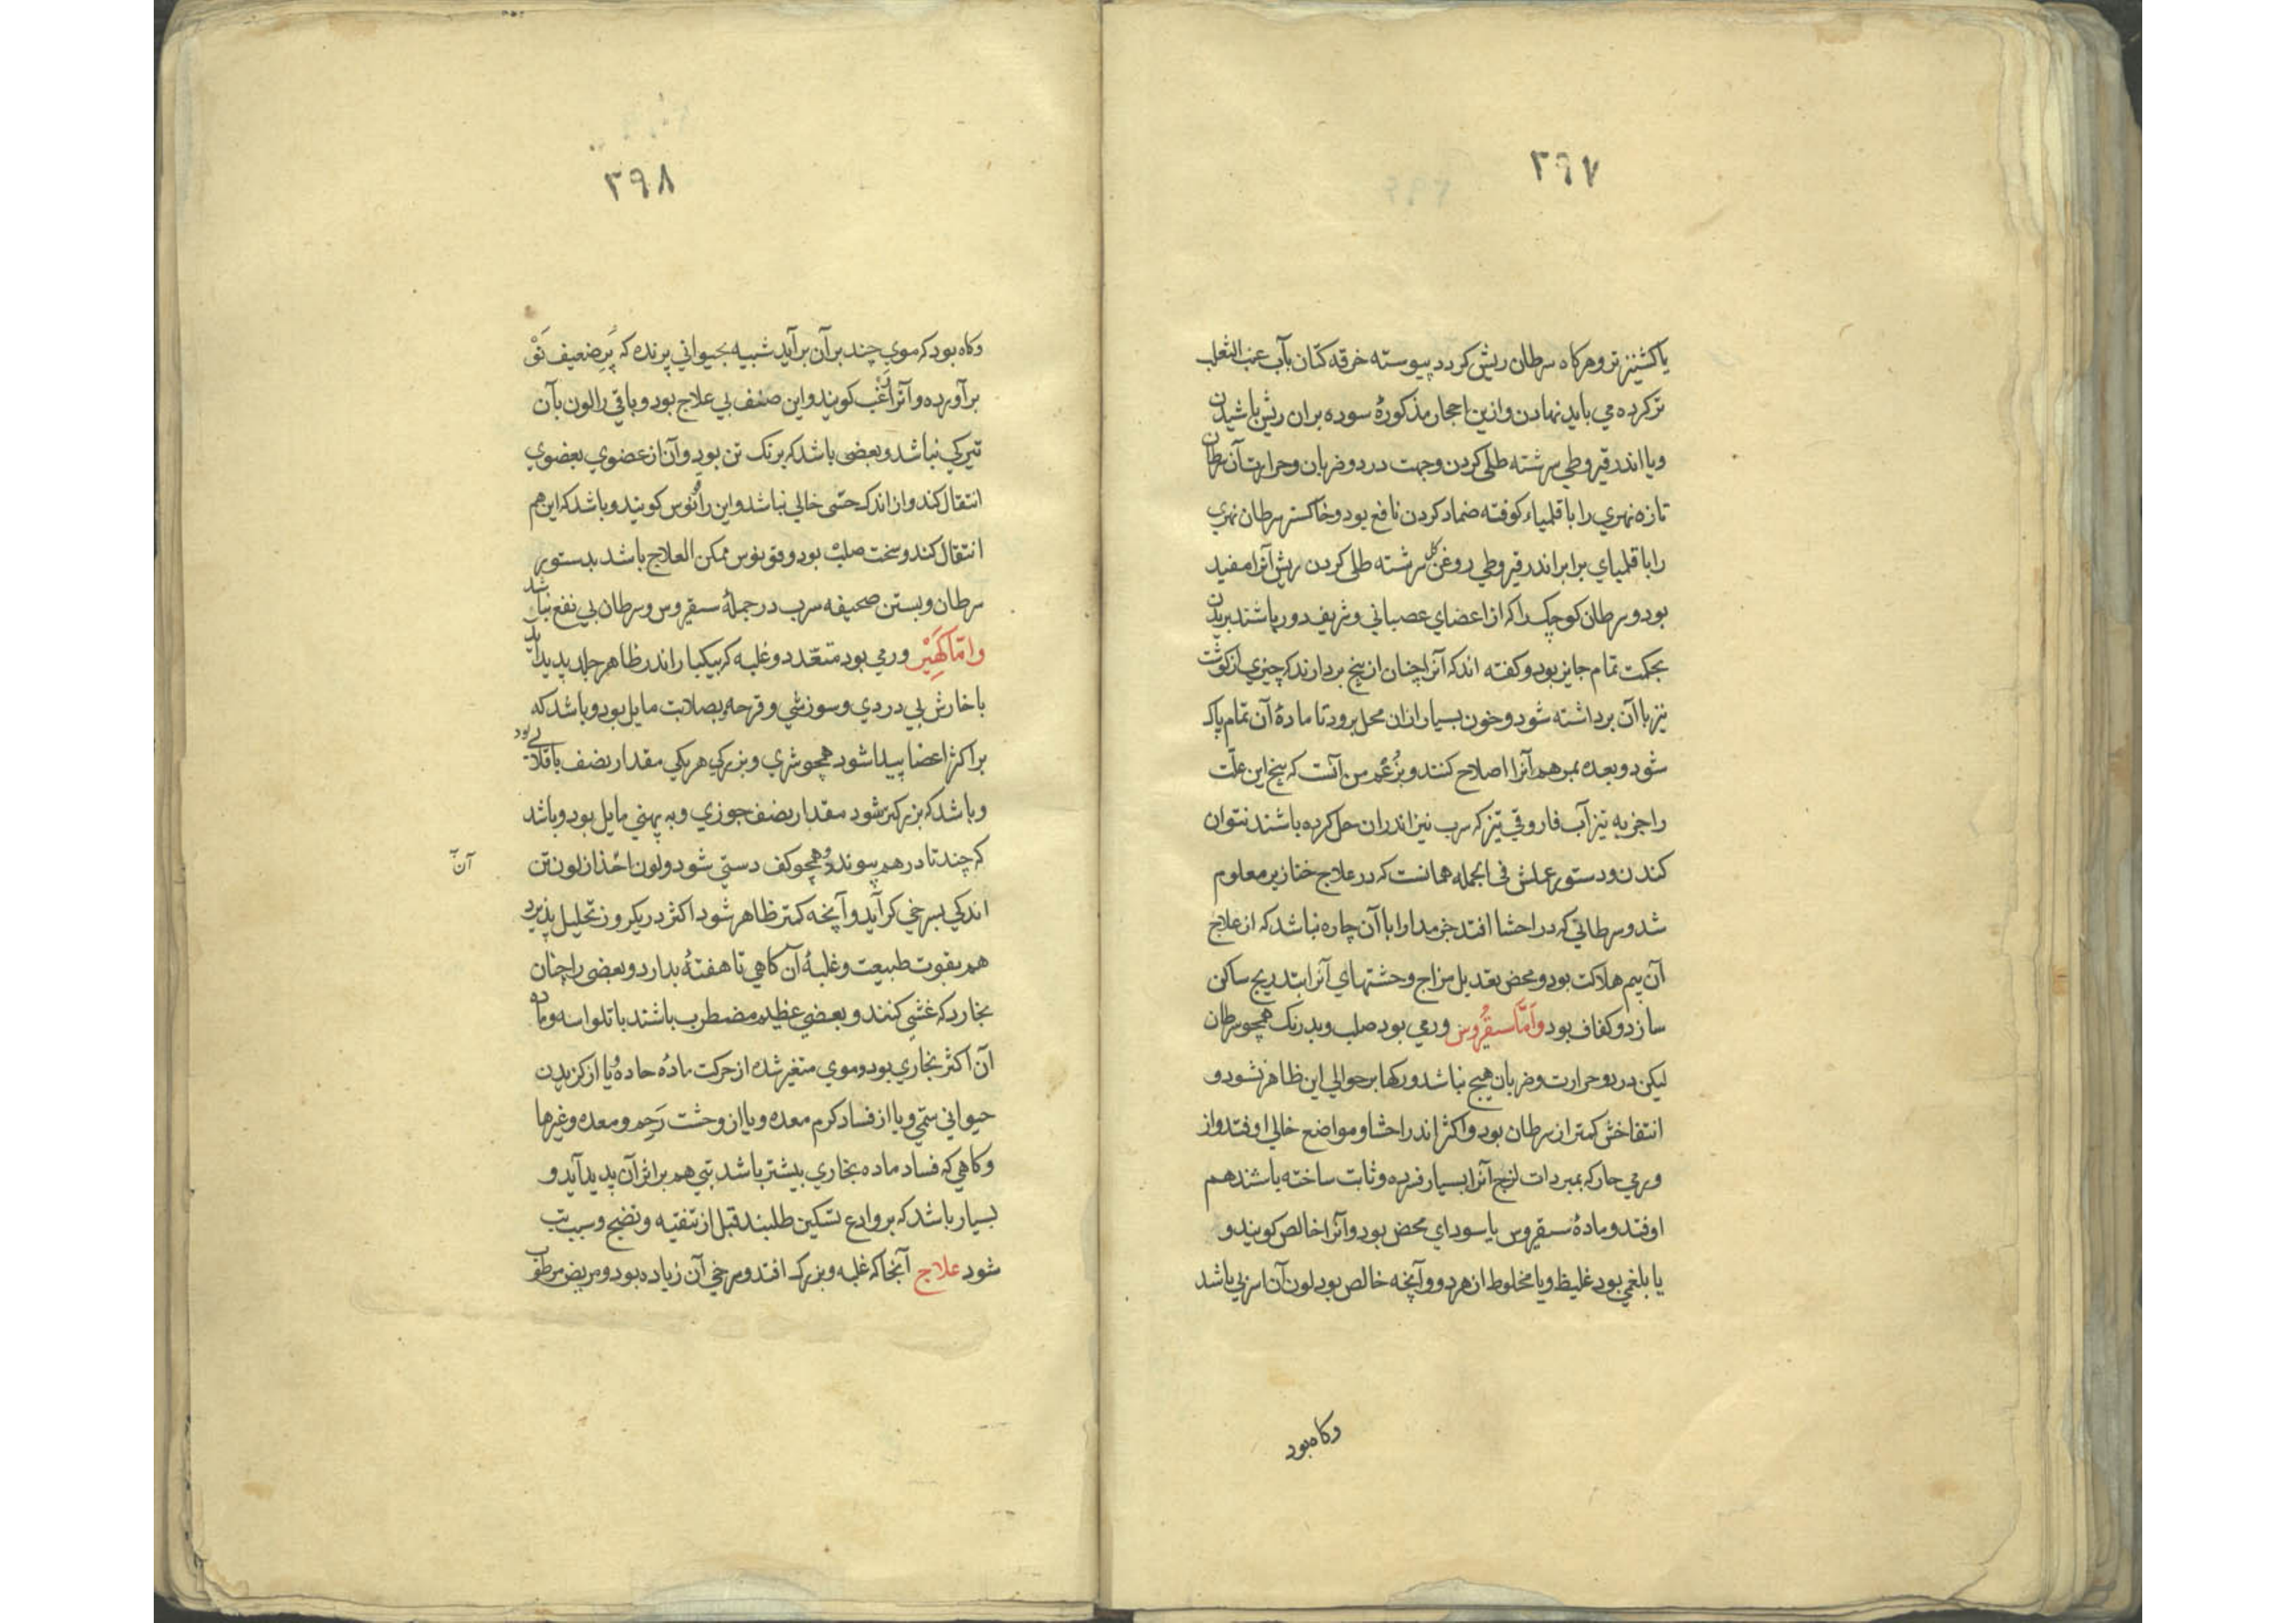 ۳۹۷
یا کشنیز تر وهرکاه سرطان ریش کردد پیوسته خرقه کتان بآب عنب الثعلب
تر کرده می باید نهادن وازین احجار مذکورهٔ سوده بران ریش باشیدن
ویا اندر قیروطی سرشته طلی کردن وجهت درد وضربان وحرارت آن سرطان
تازه نهری را با قلمیاء کوفته ضماد کردن نافع بود وخاکستر سرطان نهری
را با قلمیای برابر اندر قیروطی روغن کل سرشته طلی کردن ریش آنرا مفید
بود وسرطان کوچک را که از اعضای عصبانی وشریف دور باشند بریدن
بحکمت تمام جایز بود وکفته اند که آنرا چنان از بیخ بردارند که چیزی از کوشت
نیز با آن برداشته شود وخون بسیار ازان محل برود تا مادهٔ آن تمام پاک
شود وبعده بمرهم آنرا اصلاح کنند وبزُعم من آنست که بیخ این علّت
را جز به تیزآب فاروقی تیز که سرب نیز اندران حل کرده باشند نتوان
کندن ودستور عملش فی الجمله همانست که در علاج خنازیر معلوم
شد وسرطانی که در احشا افتد جز مدارا با آن چاره نباشد که از علاج
آن بیم هلاکت بود ومحض تعدیل مزاج وحشتهای آنرا بتدریج ساکن
سازد وکفاف بود وَامّا سقیرُوس ورمی بود صلب وبدرنک همچو سرطان
لیکن درد وحرارت وضربان هیچ نباشد ورکها برحوالی این ظاهر نشود و
انتفاخش کمتر از سرطان بود واکثر اندر احشا ومواضع خالی اوفتد واز
ورمی حار که بمبردات لزج آنرا بسیار فسرده وثابت ساخته باشند هم
اوفتد ومادهٔ سقیروس یا سودای محض بود وآنرا خالص کویند و
یا بلغمی بود غلیظ ویا مخلوط از هر دو وآنچه خالص بود لون آن اسربی باشد
وکاه بود
۳۹۸
وکاه بود که موی چند بر آن برآید شبیه بحیوانی پرنده که پَرِ ضعیف
برآورده وآنرا کویند واین صنف بی علاج بود وباقی را لون بآن
تیرکی نباشد وبعضی باشد که برنک تن بود وآن از عضوی بعضوی
انتقال کند واز اندک حسّی خالی نباشد واین را کویند وباشد که این هم
انتقال کند وسخت صلب بود وقونوس ممکن العلاج باشد بدستور
سرطان وبستن صحیفه سرب در جملهٔ سقیروس وسرطان بی نفع نباشد
وَامّا کَهیر ورمی بود متعّدد وغلبه که بیکبار اندر ظاهر جلد پدید آید
با خارش بی دردی وسوزشی وقرحه وبصلابت مایل بود وباشد که
بر اکثر اعضا پیدا شود همچو شری وبزرکی هر یکی مقدار نصف باقلایی بود
وباشد که بزرکتر شود مقدار نصف جوزی وبه پهنی مایل بود وباشد
که چند تا درهم پیوندد وهمچو کف دستی شود ولون از لون تن
آن
اندکی بسرخی کرآید وآنچه کمتر ظاهر شود اکثر در یکروز تحلیل پذیرد
هم بقوت طبیعت وغلبهٔ آن کاهی تا هفتهٔ بدارد وبعضی را چنان
بخارد که غشی کنند وبعضی عظیم مضطرب باشند با تلواسه وماده
آن اکثر بخاری بود دموی متغیر شده از حرکت مادهٔ حادهٔ یا از کزیدن
حیوانی سمّی ویا از فساد کرم معده ویا از وحشت رَحِم ومعده وغیرها
وکاهی که فساد ماده بخاری بیشتر باشد تبی هم بر اثر آن پدید آید و
بسیار باشد که بروادع تسکین طلبند قبل از تنقیه ونضج وسبب تب
شود علاج آنجا که غلبه وبزرک افتد وسرخی آن زیاده بود ومریض مرطوب